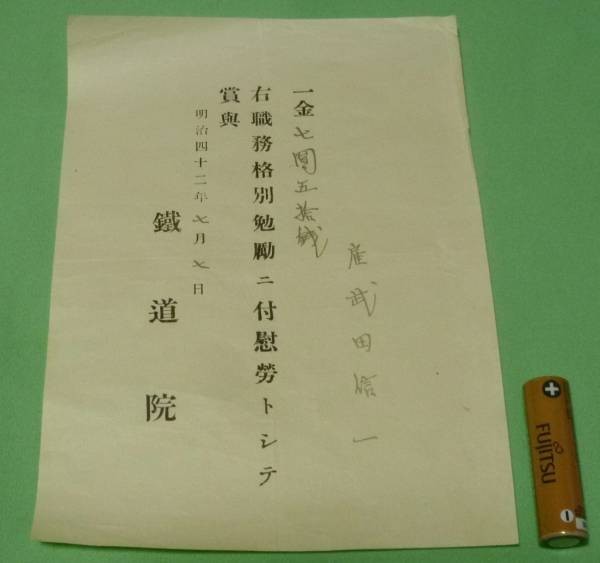 雇 武田信一
一金七圓五拾錢
右職務格別勉勵ニ付慰勞トシテ
賞與
明治四十二年七月七日
鐵道院
FUJITSU